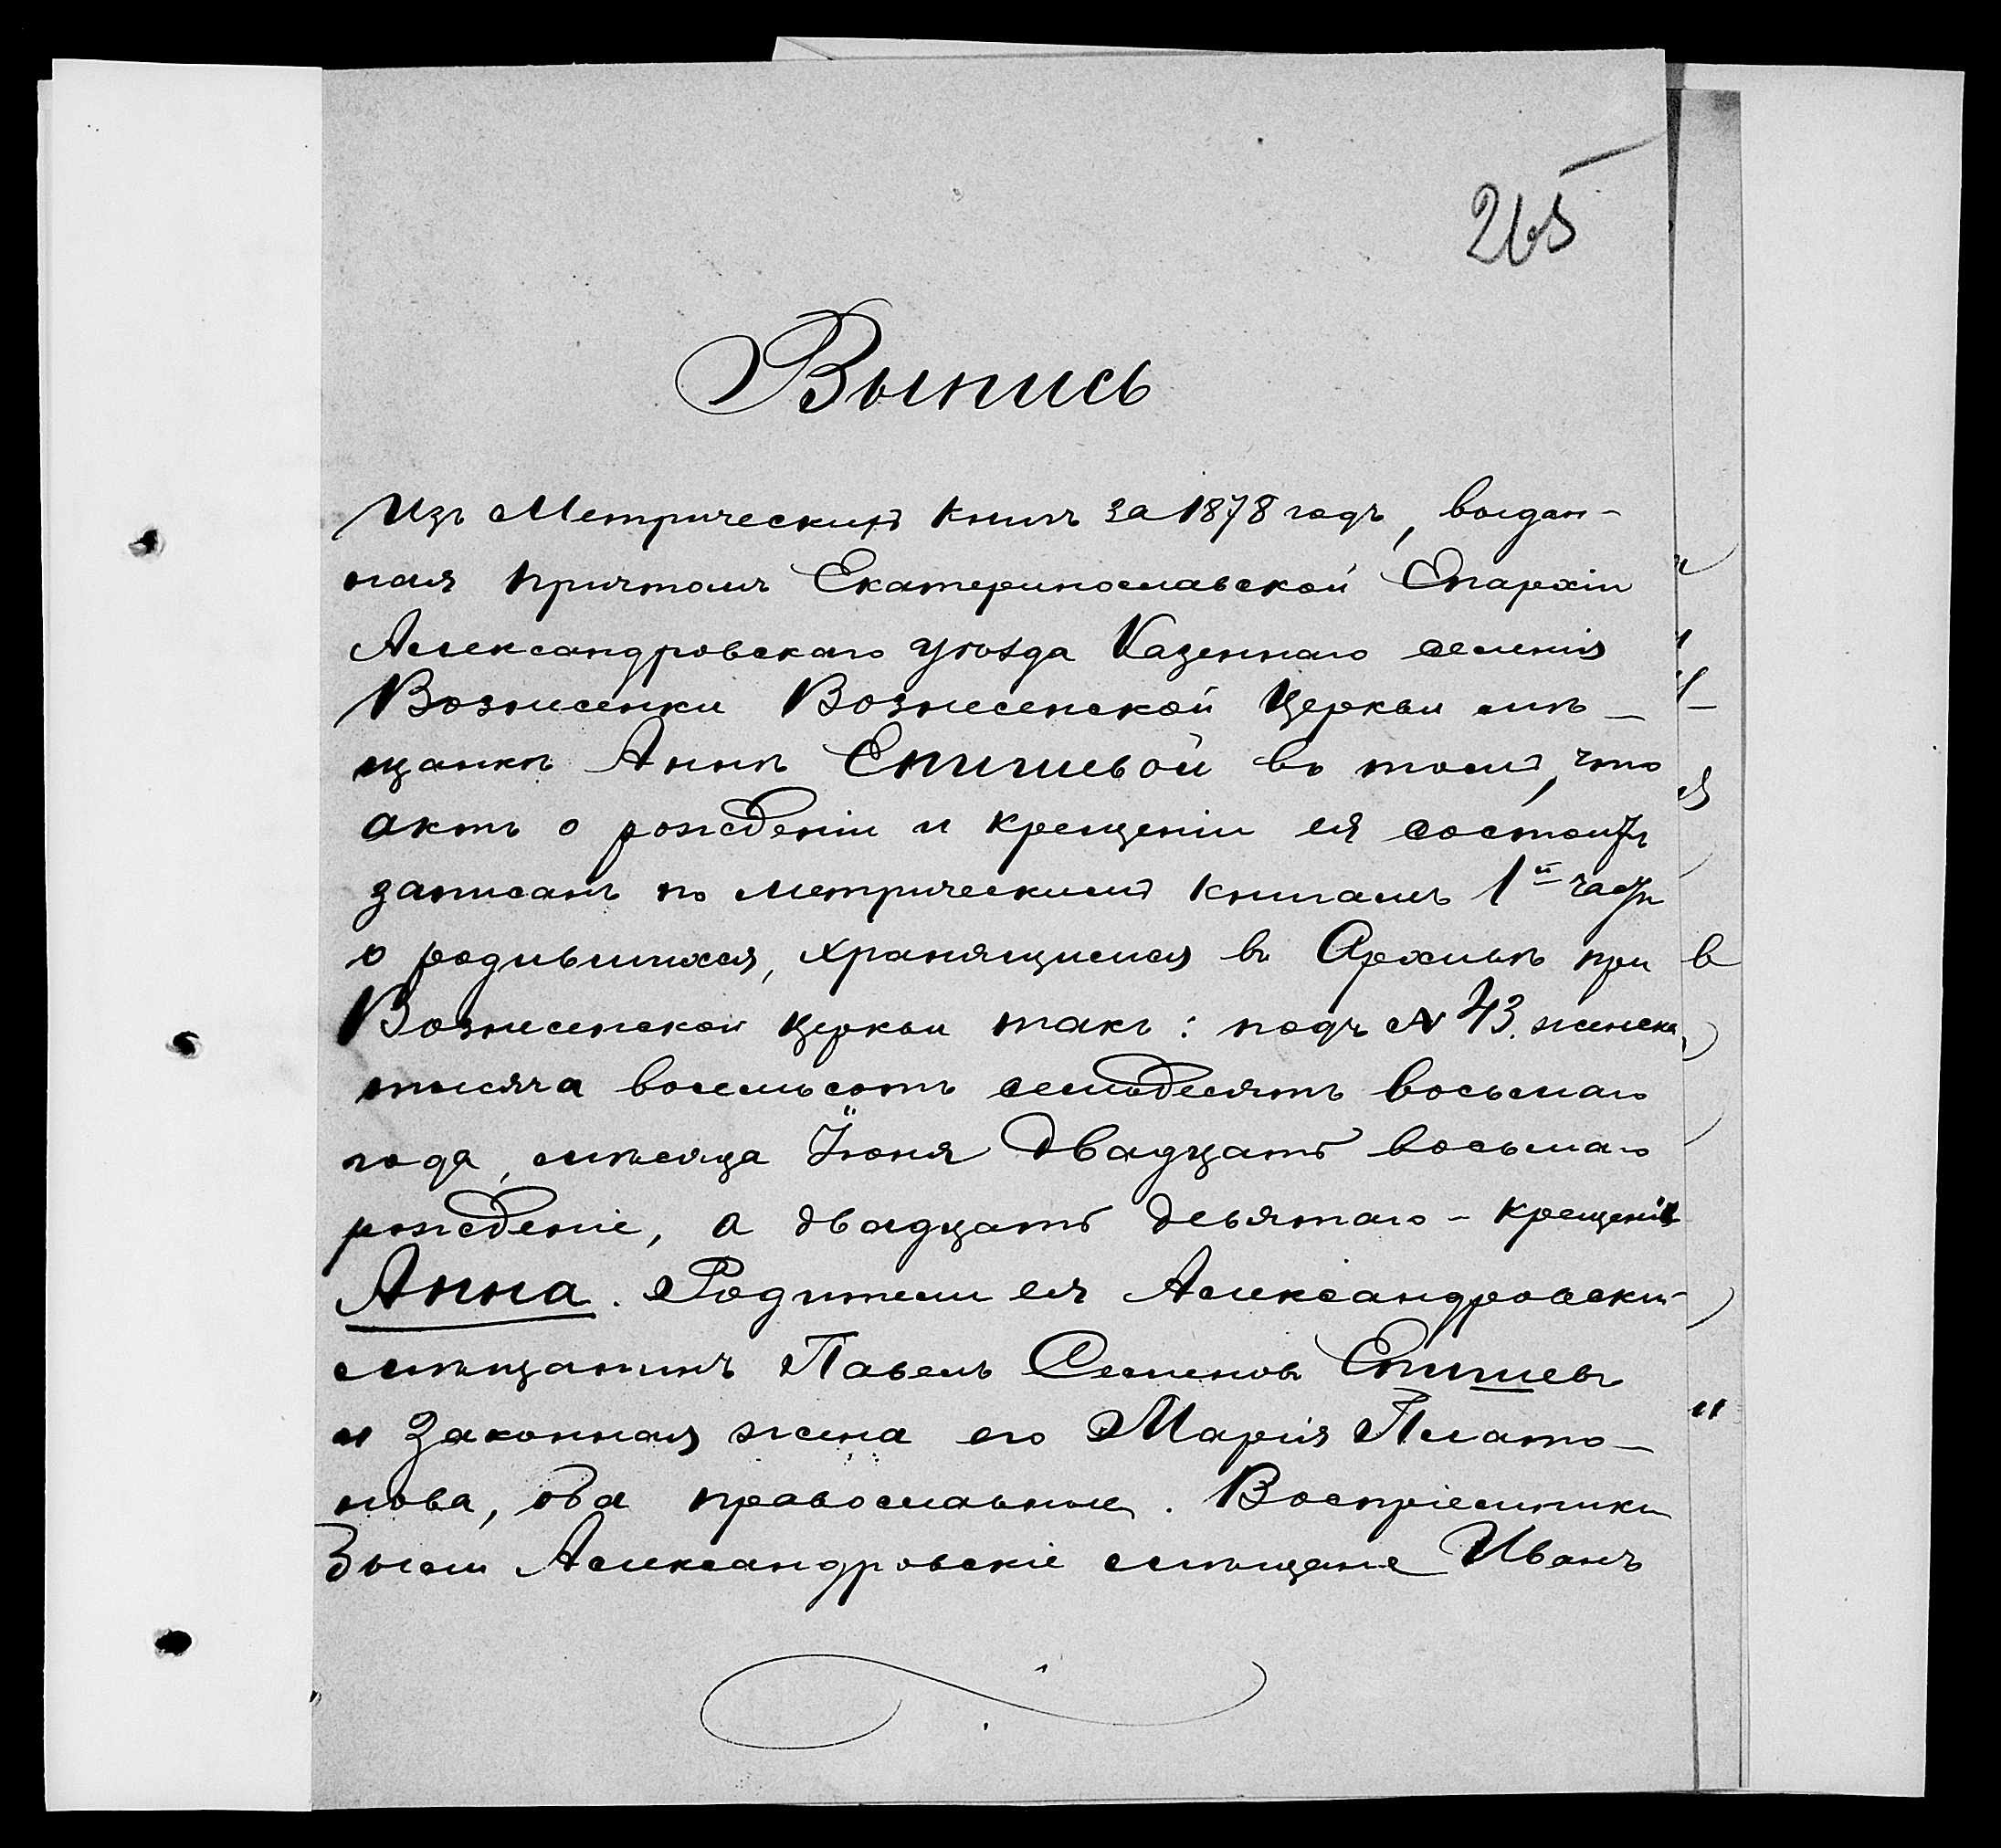 265
Выпись
Изъ Метрическихъ книгъ за 1878 годъ, выдан-
ная Причтомъ Екатеринославской Епархіи
Александровскаго уѣзда Казеннаго селенія
Вознесенки Вознесенской Церкви мѣ-
щанкѣ Аннѣ Епишевой въ томъ, что
актъ о рожденіи и крещеніи ея состоитъ
записанъ по метрическимъ книгамъ 1й части
о родившихся, хранящимся въ Архивѣ при
Вознесенской церкви такъ: подъ № 43. женска
тысяча восемьсотъ семьдесятъ восьмаго
года, мѣсяца Іюня двадцать восьмаго
рожденіе, а двадцать девятаго - крещеніе
Анна. Родители ея Александровскій
мѣщанинъ Павелъ Семеновъ Епишевъ
и законная жена его Марія Плато-
нова, оба православные. Воспріемники
были Александровскіе мѣщане Иванъ